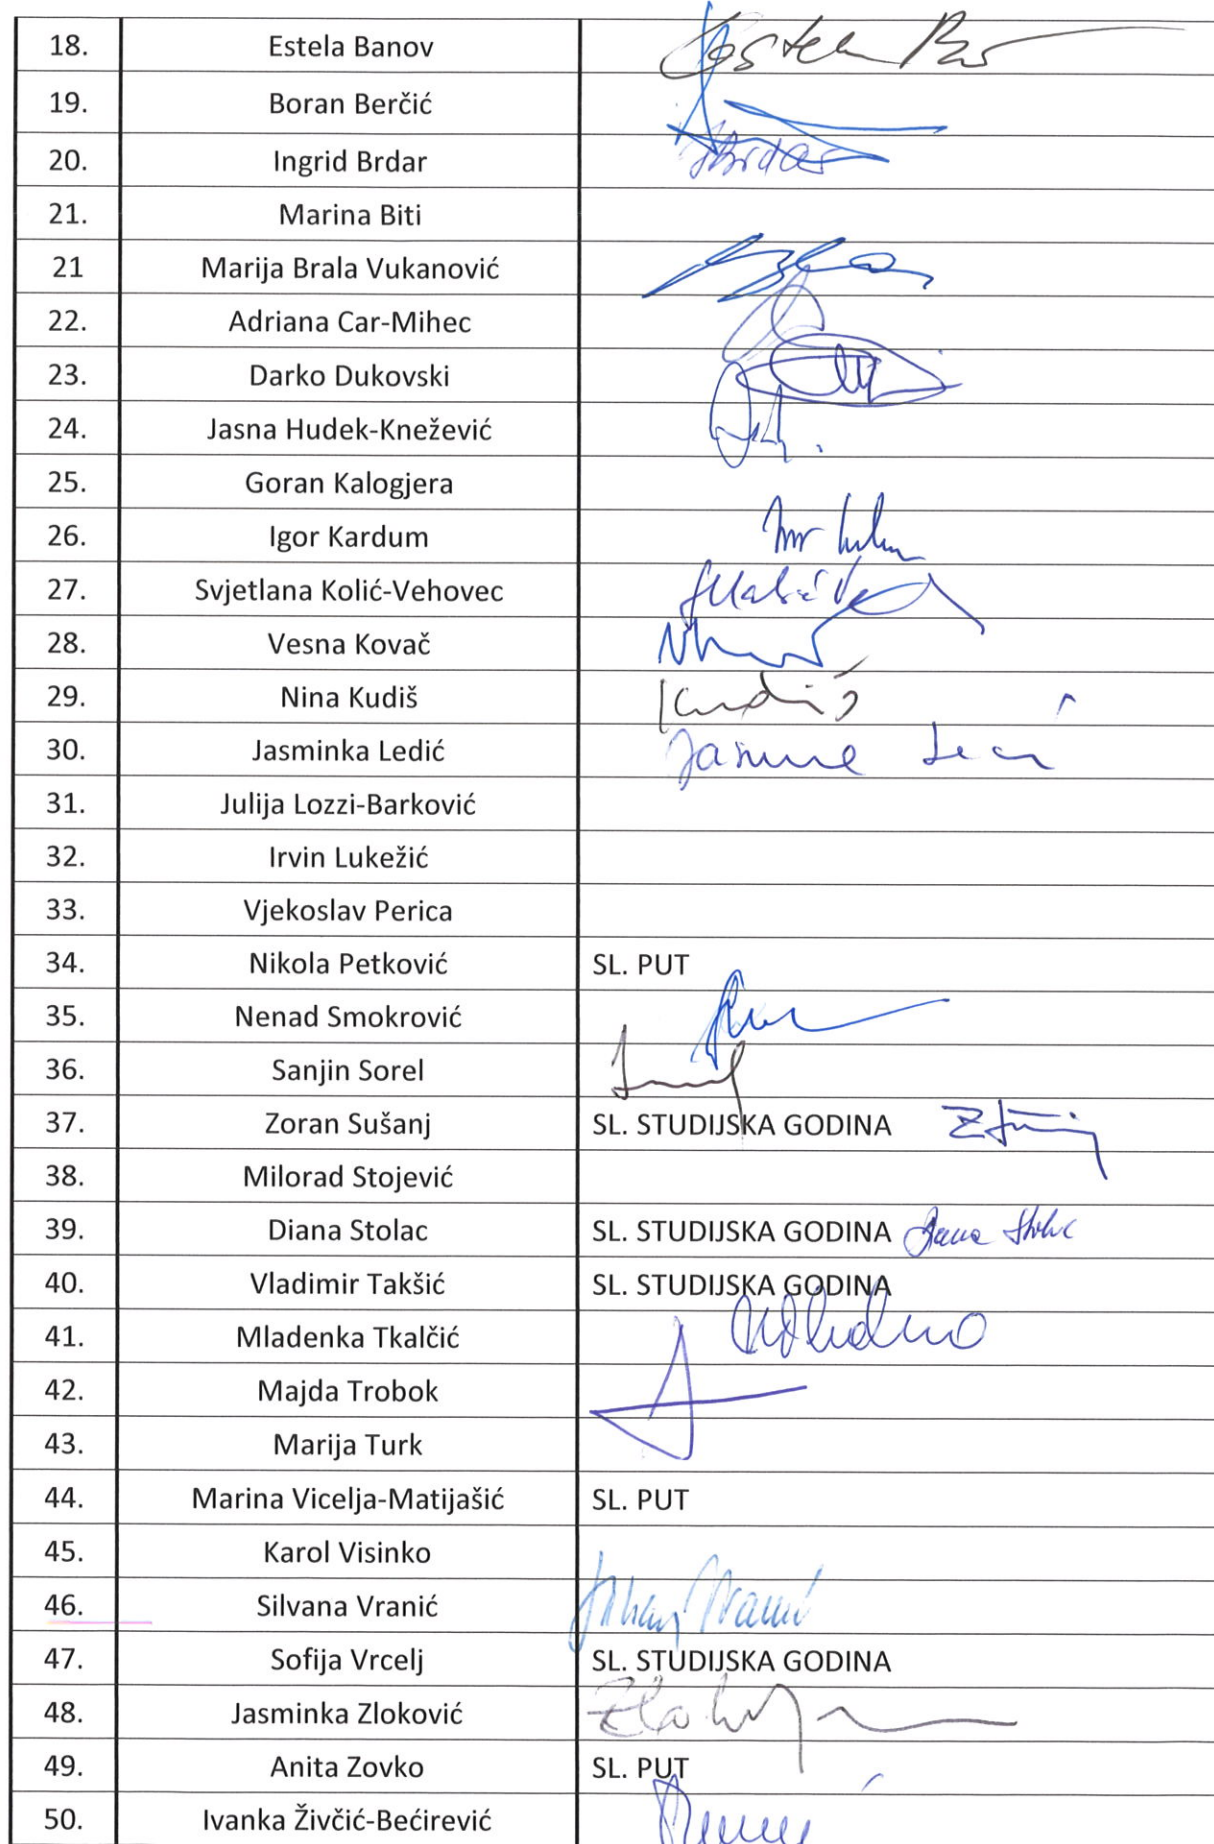 18. Estela Banov Estela
19. Boran Berčić
20. Ingrid Brdar Brdar
21. Marina Biti
21 Marija Brala Vukanović
22. Adriana Car-Mihec
23. Darko Dukovski
24. Jasna Hudek-Knežević
25. Goran Kalogjera
26. Igor Kardum
27. Svjetlana Kolić-Vehovec
28. Vesna Kovač
29. Nina Kudiš Kudiš
30. Jasminka Ledić
31. Julija Lozzi-Barković
32. Irvin Lukežić
33. Vjekoslav Perica
34. Nikola Petković SL. PUT
35. Nenad Smokrović
36. Sanjin Sorel
37. Zoran Sušanj SL. STUDIJSKA GODINA
38. Milorad Stojević
39. Diana Stolac SL. STUDIJSKA GODINA
40. Vladimir Takšić SL. STUDIJSKA GODINA
41. Mladenka Tkalčić
42. Majda Trobok
43. Marija Turk
44. Marina Vicelja-Matijašić SL. PUT
45. Karol Visinko
46. Silvana Vranić
47. Sofija Vrcelj SL. STUDIJSKA GODINA
48. Jasminka Zloković
49. Anita Zovko SL. PUT
50. Ivanka Živčić-Bećirević